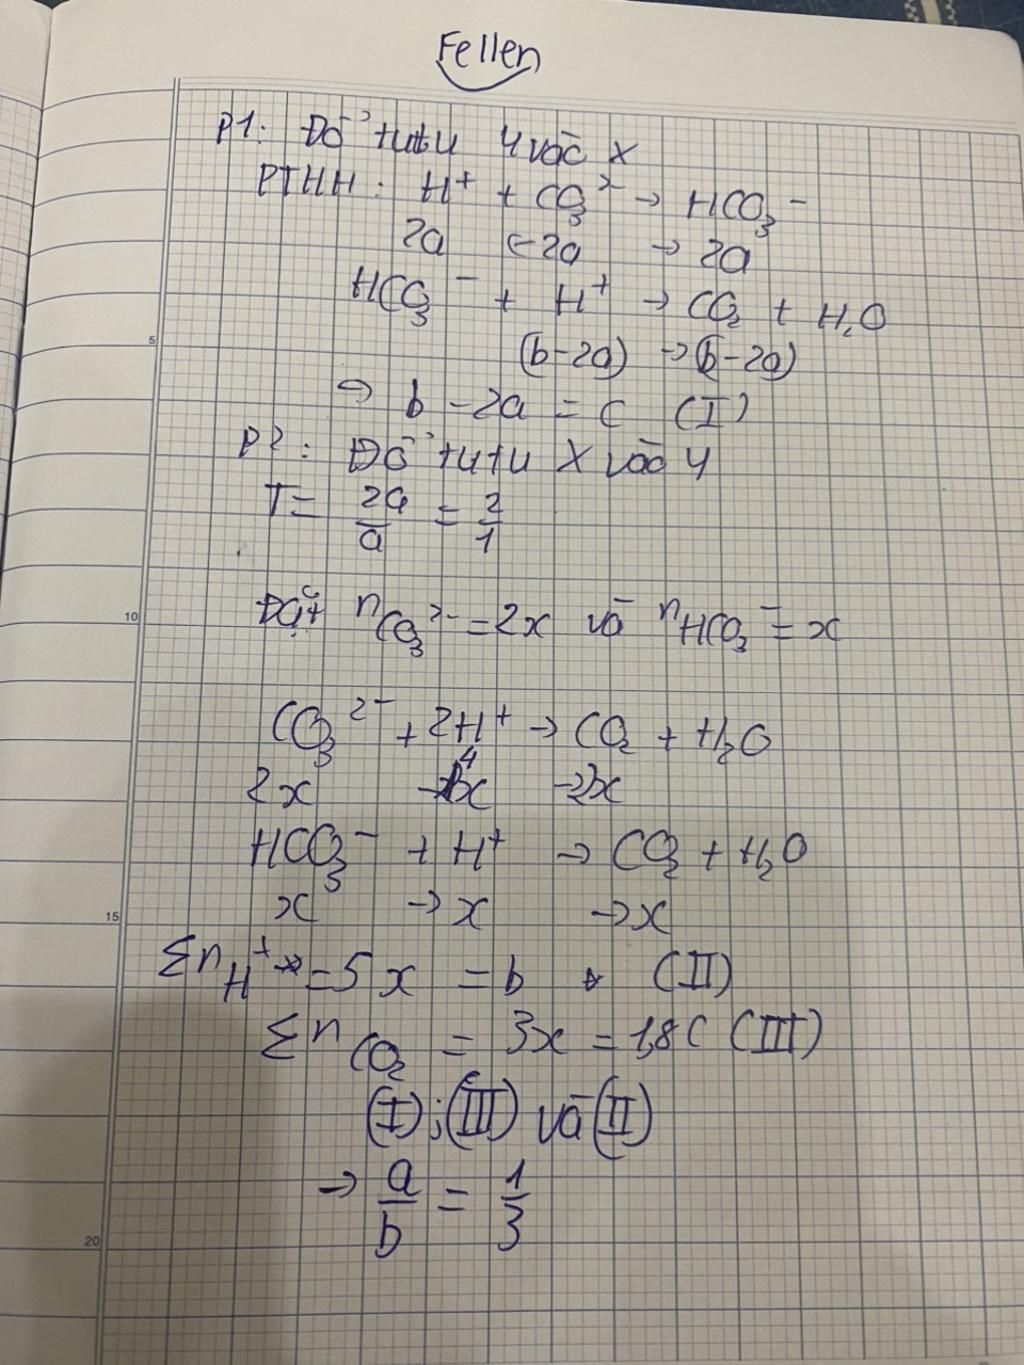 Fellen
P1: Đổ từ từ Y vào X
PTHH: H⁺ + CO₃²⁻ → HCO₃⁻
2a ← 2a → 2a
HCO₃⁻ + H⁺ → CO₂ + H₂O
5
(b-2a) → (b-2a)
→ b - 2a = c (I)
P2: Đổ từ từ X vào Y
T = 2a/a = 2/1
10
Đặt nCO₃²⁻ = 2x và nHCO₃⁻ = x
CO₃²⁻ + 2H⁺ → CO₂ + H₂O
2x → 4x → 2x
HCO₃⁻ + H⁺ → CO₂ + H₂O
x → x → x
15
Σn H⁺ = 5x = b (II)
Σn CO₂ = 3x = 1,8C (III)
(I); (III) và (II)
→ a/b = 1/3
20